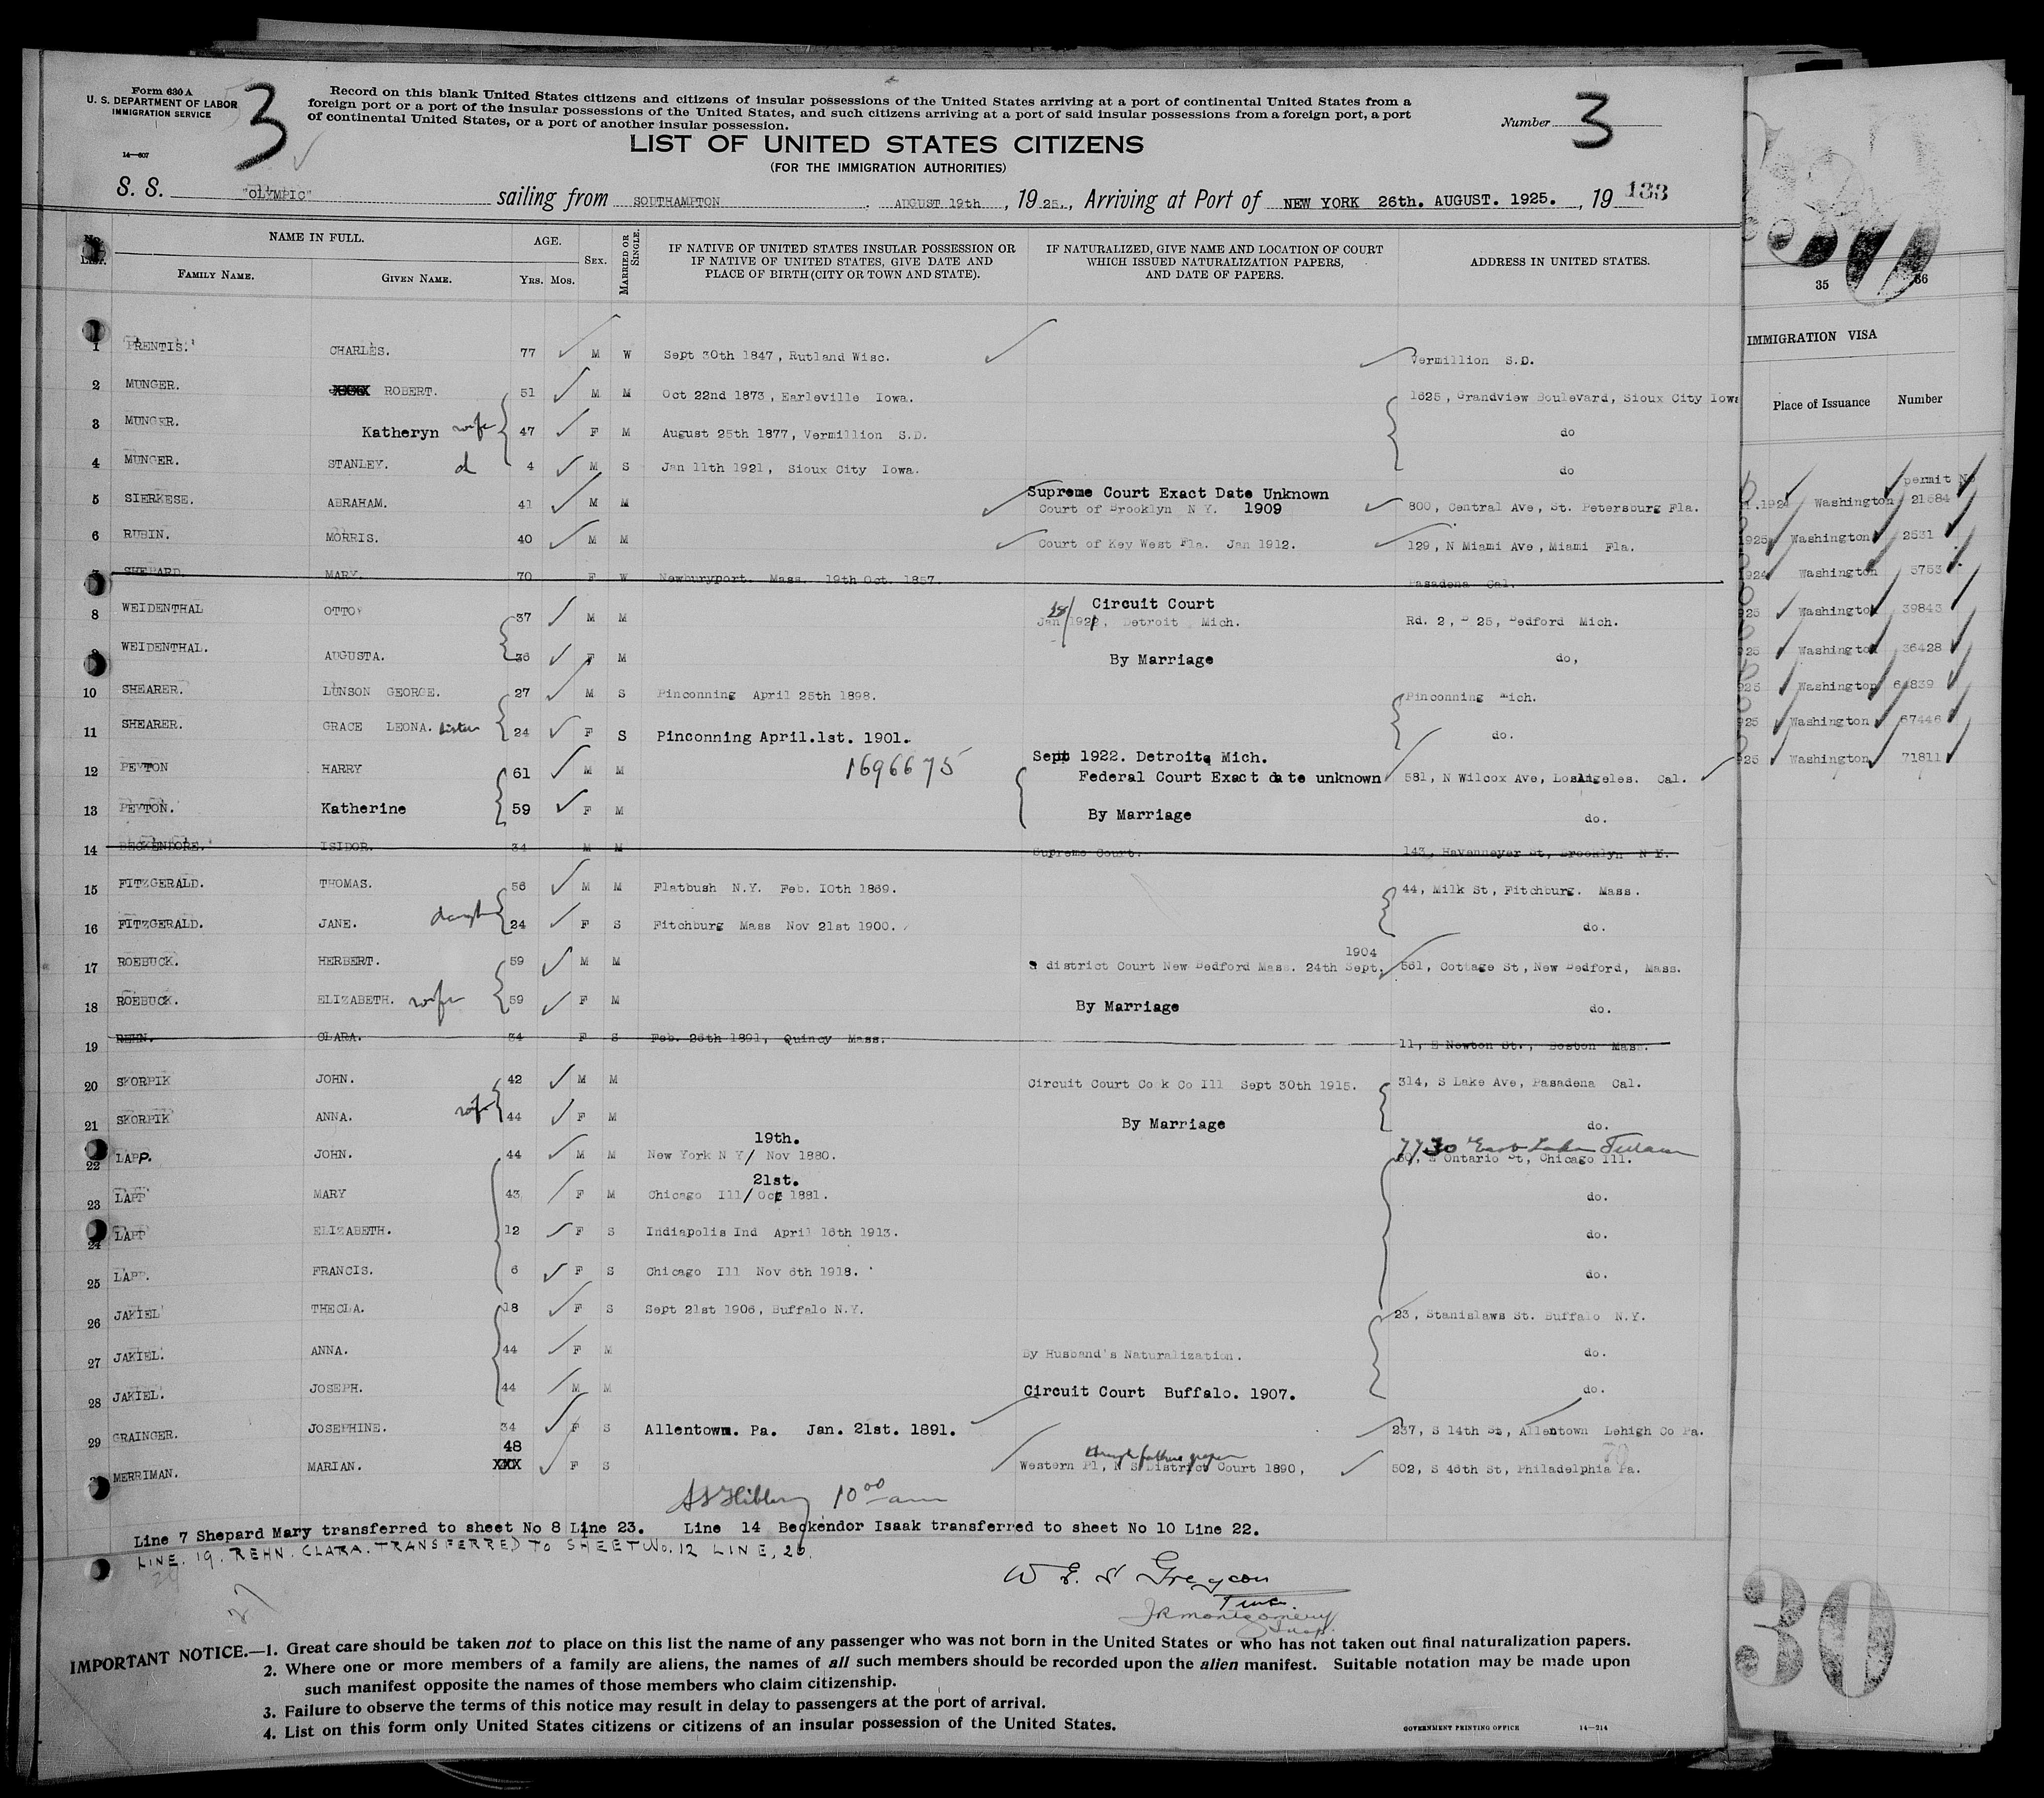 Form 630 A
U. S. DEPARTMENT OF LABOR
IMMIGRATION SERVICE
14—607
3
Record on this blank United States citizens and citizens of insular possessions of the United States arriving at a port of continental United States from a
foreign port or a port of the insular possessions of the United States, and such citizens arriving at a port of said insular possessions from a foreign port, a port
of continental United States, or a port of another insular possession.
Number 3
LIST OF UNITED STATES CITIZENS
(FOR THE IMMIGRATION AUTHORITIES)
S. S. "OLYMPIC" sailing from SOUTHAMPTON AUGUST 19th, 1925., Arriving at Port of NEW YORK 26th. AUGUST. 1925. , 19 133
No. LIST. NAME IN FULL. FAMILY NAME. GIVEN NAME. AGE. YRS. MOS. SEX. MARRIED OR SINGLE. IF NATIVE OF UNITED STATES INSULAR POSSESSION OR IF NATIVE OF UNITED STATES, GIVE DATE AND PLACE OF BIRTH (CITY OR TOWN AND STATE). IF NATURALIZED, GIVE NAME AND LOCATION OF COURT WHICH ISSUED NATURALIZATION PAPERS, AND DATE OF PAPERS. ADDRESS IN UNITED STATES.
1 PRENTIS. CHARLES. 77 M W Sept 30th 1847, Rutland Wisc. Vermillion S.D.
2 MUNGER. XXXX ROBERT. 51 M M Oct 22nd 1873, Earleville Iowa. 1625, Grandview Boulevard, Sioux City Iowa
3 MUNGER. Katheryn wife 47 F M August 25th 1877, Vermillion S.D. do
4 MUNGER. STANLEY. d 4 M S Jan 11th 1921, Sioux City Iowa. do
5 SIERKESE. ABRAHAM. 41 M M Supreme Court Exact Date Unknown
Court of Brooklyn N Y. 1909 800, Central Ave, St. Petersburg Fla.
6 RUBIN. MORRIS. 40 M M Court of Key West Fla. Jan 1912. 129, N Miami Ave, Miami Fla.
SHEPARD. MARY. 70 F W Newburyport. Mass. 19th Oct. 1857. Pasadena Cal.
8 WEIDENTHAL OTTO 37 M M Circuit Court
Jan 192, Detroit Mich. Rd. 2, B 25, Bedford Mich.
9 WEIDENTHAL. AUGUSTA. 36 F M By Marriage do,
10 SHEARER. LUNSON GEORGE. 27 M S Pinconning April 25th 1898. Pinconning Mich.
11 SHEARER. GRACE LEONA. sister 24 F S Pinconning April.1st. 1901. do.
12 PEYTON HARRY 61 M M 1696675 Sept 1922. Detroit. Mich.
Federal Court Exact date unknown 581, N Wilcox Ave, Los Angeles. Cal.
13 PEYTON. Katherine 59 F M By Marriage do.
14 BECKENDORE. ISIDOR. 34 M M Supreme Court. 143, Havenmeyer St, Brooklyn N Y.
15 FITZGERALD. THOMAS. 56 M M Flatbush N.Y. Feb. 10th 1869. 44, Milk St, Fitchburg. Mass.
16 FITZGERALD. JANE. daught 24 F S Fitchburg Mass Nov 21st 1900. do.
17 ROEBUCK. HERBERT. 59 M M district Court New Bedford Mass. 24th Sept. 1904 561, Cottage St, New Bedford, Mass.
18 ROEBUCK. ELIZABETH. wife 59 F M By Marriage do.
19 REHN. CLARA. 34 F S Feb. 26th 1891, Quincy Mass. 11, E Newton St., Boston Mass.
20 SKORPIK JOHN. 42 M M Circuit Court Cook Co Ill Sept 30th 1915. 314, S Lake Ave, Pasadena Cal.
21 SKORPIK ANNA. wife 44 F M By Marriage do.
22 LAPP. JOHN. 44 M M New York N Y/ 19th. Nov 1880. 7730 East Lake
E Ontario St, Chicago Ill.
23 LAPP MARY 43 F M Chicago Ill/ 21st. Oct 1881. do.
24 LAPP ELIZABETH. 12 F S Indiapolis Ind April 16th 1913. do.
25 LAPP. FRANCIS. 6 F S Chicago Ill Nov 6th 1918. do.
26 JAKIEL THECLA. 18 F S Sept 21st 1906, Buffalo N.Y. 23, Stanislaws St. Buffalo N.Y.
27 JAKIEL. ANNA. 44 F M By Husband's Naturalization. do.
28 JAKIEL. JOSEPH. 44 M M Circuit Court Buffalo. 1907. do.
29 GRAINGER. JOSEPHINE. 34 F S Allentown. Pa. Jan. 21st. 1891. 237, S 14th St, Allentown Lehigh Co Pa.
MERRIMAN. MARIAN. 48 XXX F S through fathers papers
Western Pl, U S District Court 1890, 502, S 46th St, Philadelphia Pa.
10 00 am
Line 7 Shepard Mary transferred to sheet No 8 Line 23. Line 14 Beckendor Isaak transferred to sheet No 10 Line 22.
LINE. 19. REHN. CLARA. TRANSFERRED TO SHEET No. 12 LINE, 26.
JR Montgomery
Insp.
IMPORTANT NOTICE.—1. Great care should be taken not to place on this list the name of any passenger who was not born in the United States or who has not taken out final naturalization papers.
2. Where one or more members of a family are aliens, the names of all such members should be recorded upon the alien manifest. Suitable notation may be made upon
such manifest opposite the names of those members who claim citizenship.
3. Failure to observe the terms of this notice may result in delay to passengers at the port of arrival.
4. List on this form only United States citizens or citizens of an insular possession of the United States.
GOVERNMENT PRINTING OFFICE 14—214
35 36
IMMIGRATION VISA
Place of Issuance Number
permit No
1924 Washington 21684
1925 Washington 2531
1924 Washington 5753
925 Washington 39843
925 Washington 36428
925 Washington 64839
925 Washington 67446
925 Washington 71811
30